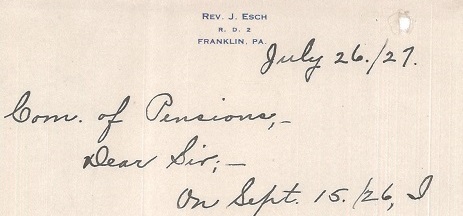 REV. J. ESCH
R. D. 2
FRANKLIN, PA.
July 26./27.
Com. of Pensions,–
Dear Sir;–
On Sept. 15. /26, I